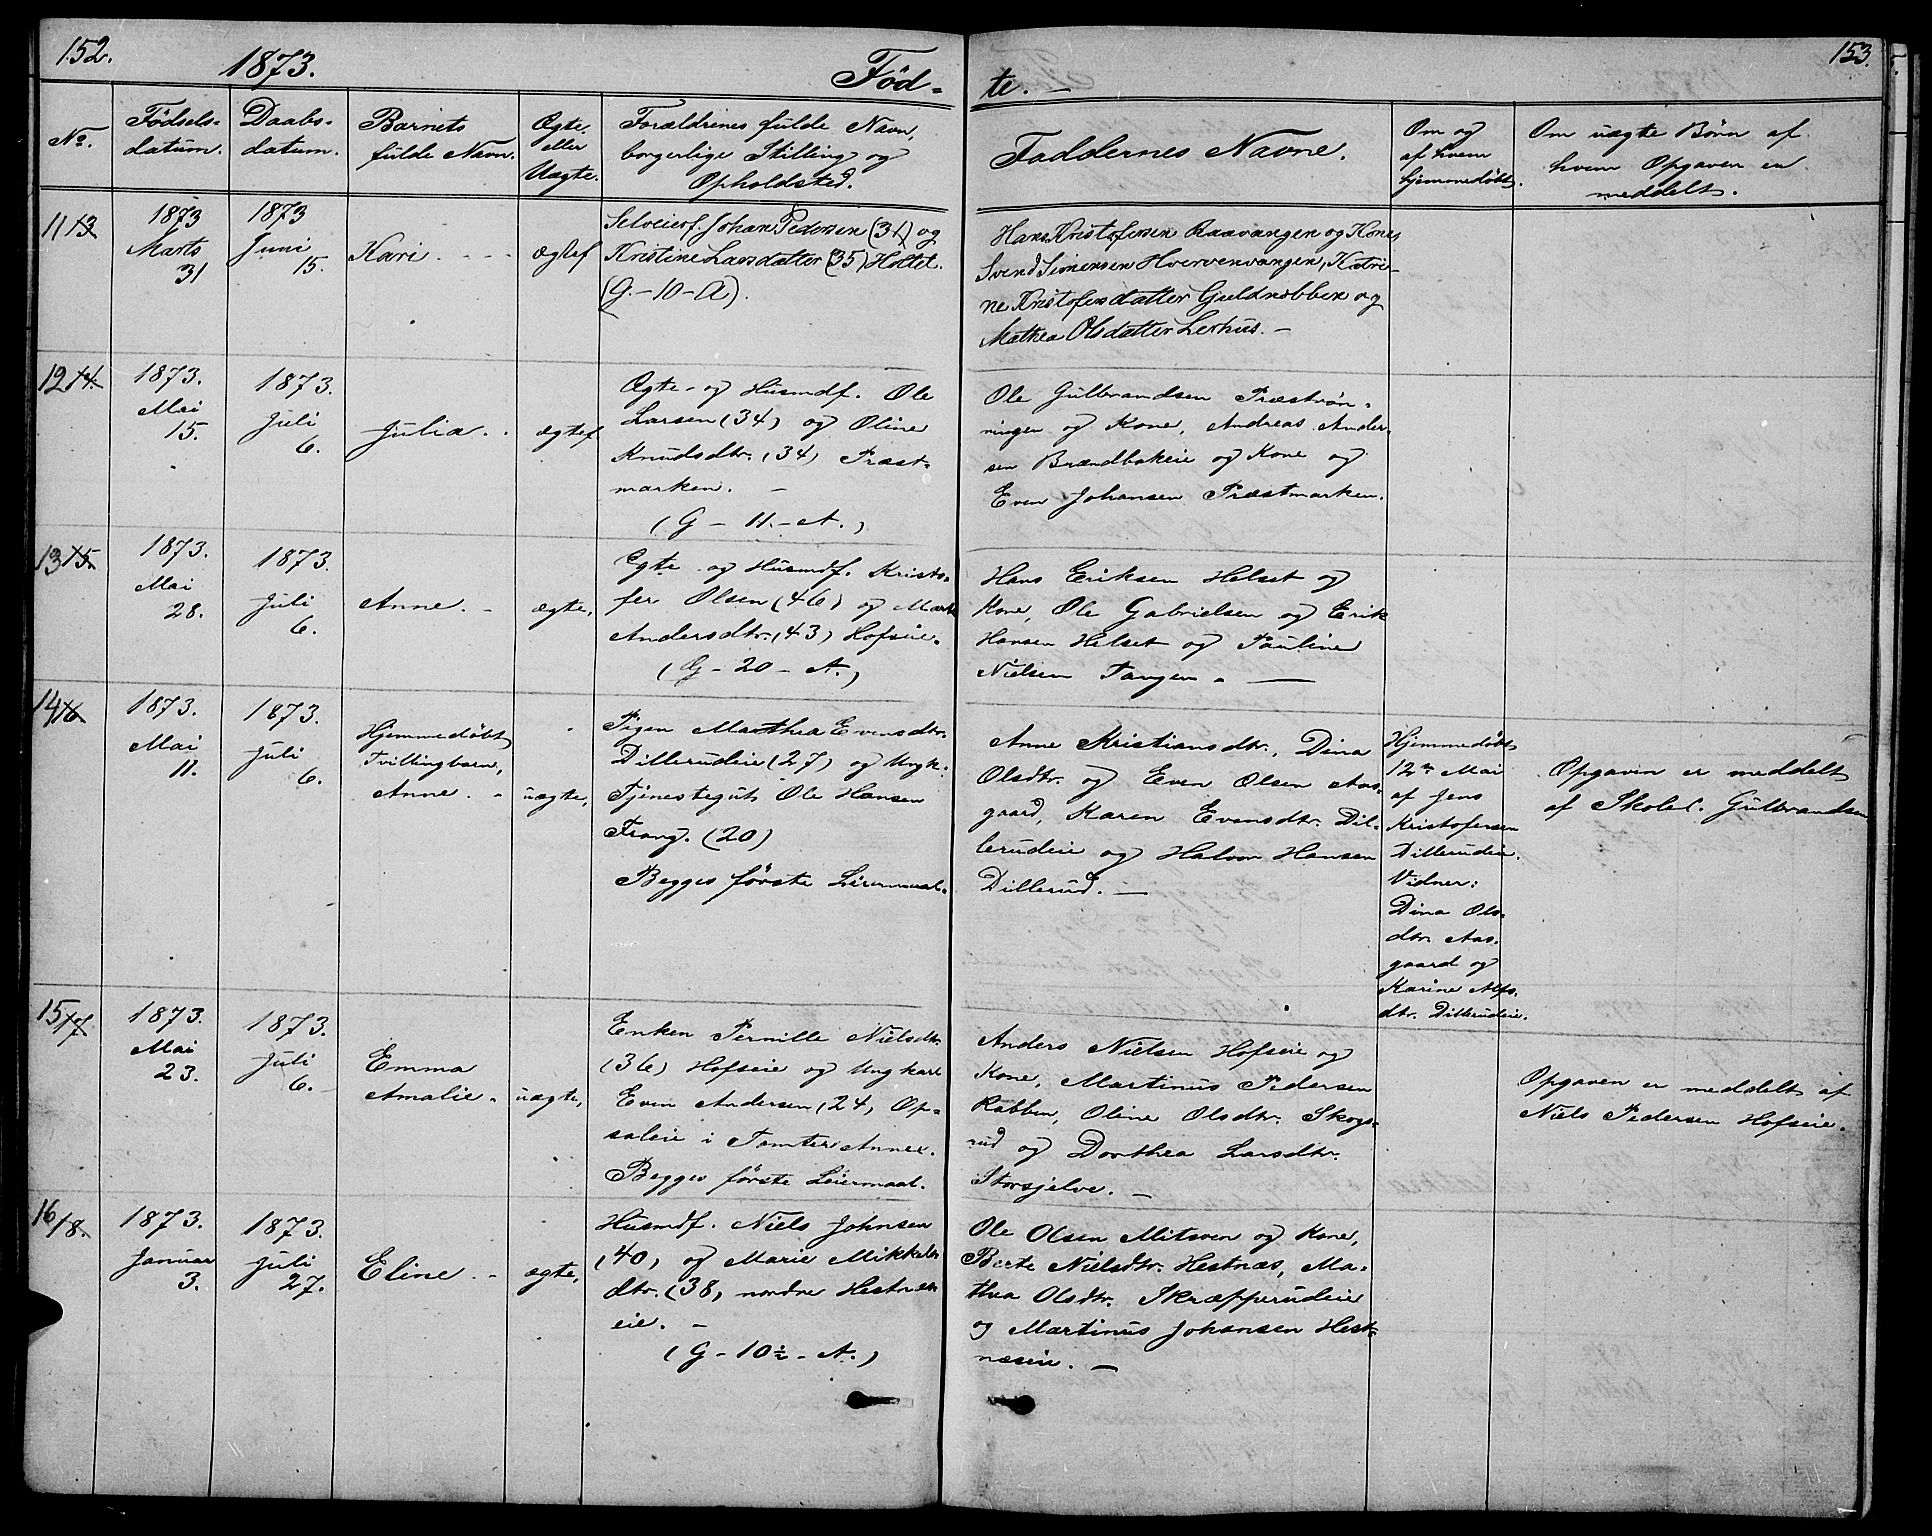 152.
1873.
Fød-
te. -
153.
No.
Fødsels-
datum.
Daabs-
datum.
Barnets
fulde Navn.
Ægte.
eller
Uægte.
Forældrenes fulde Navn,
borgerlige Stilling og
Opholdsted.
Faddernes Navne.
Om og
af hvem
hjemmedøbt.
Om uægte Børn af
hvem Opgaven er
meddelt.
11 13
1873
Marts
31
1873
Juni
15.
Kari
ægtef
Selveierf. Johan Pedersen (31) og
Kristine Larsdatter (35) Holtet.
(G. - 10 - A).
Hans Kristofersen Raavangen og Kone,
Svend Simensen Hvervenvangen, Katri-
ne Kristofersdatter Guldnobben og
Mathea Olsdatter Lerhus. -
12 14.
1873.
Mai
15.
1873.
Juli
6.
Julia.
ægtef
Ægte- og Husmdf. Ole
Larsen (34) og Oline
Knudsdtr. (34) Præst-
marken. -
(G - 11. - A.)
Ole Gulbrandsen Præstrøn-
ningen og Kone, Andreas Ander-
sen Brændbakeie og Kone og
Even Johansen Præstmarken.
13 15.
1873.
Mai
28.
1873.
Juli
6.
Anne. -
ægte,
Egte- og Husmdf. Kristo-
fer Olsen (46) og
Andersdtr. (43) Hofseie.
(G - 20 - A.)
Hans Eriksen Helset og
Kone, Ole Gabrielsen og Erik
Hansen Helset og Pauline
Nielsen Tangen. -
14 16.
1873.
Mai
11.
1873.
Juli
6.
Hjemmedøbt
Tvillingbarn,
Anne. -
uægte,
Pigen Marthea Evensdtr.
Dillerudeie (27) og Ungk.
Tjenestegut Ole Hansen
Frang. (20)
Begges første Leiermaal.
Anne Kristiansdtr., Dina
Olsdtr. og Even Olsen Aas-
gaard, Karen Evensdtr. Dil-
lerudeie og Halvor Hansen
Dillerud. -
Hjemmedøbt
12te Mai
af Jens
Kristofersen
Dillerudeie.
Vidner:
Dina Ols-
dtr. Aas-
gaard og
Karine Alfs-
dtr. Dillerudeie.
Opgaven er meddelt
af Skolel. Gulbrandsen
15 17.
1873.
Mai
23.
1873.
Juli
6.
Emma
Amalie.
uægte,
Enken Pernille Nielsdtr.
(36) Hofseie og Ungkarl
Even Andersen (24) Op-
saleie i Tomter Annex.
Begges første Leiermaal.
Anders Nielsen Hofseie og
Kone, Martinus Pedersen
Rabben, Oline Olsdtr. Skogs-
rud og Dorthea Larsdtr.
Storsjelve. -
Opgaven er meddelt af
Niels Pedersen Hofseie.
16 18.
1873.
Januar
3.
1873.
Juli
27.
Eline. -
ægte,
Husmdf. Niels Johnsen
(40) og Marie Mikkels-
dtr. (38) nordre Hestnæs
eie. -
(G - 10½ - A.)
Ole Olsen Mitsven og Kone,
Berte Nielsdtr. Hestnæs, Ma-
thea Olsdtr. Skræpperudeie
og Martinus Johansen Hest-
næseie. -